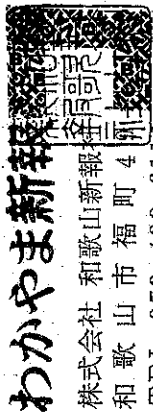 わかやま新報
株式会社 和歌山新報社
和歌山市福町4